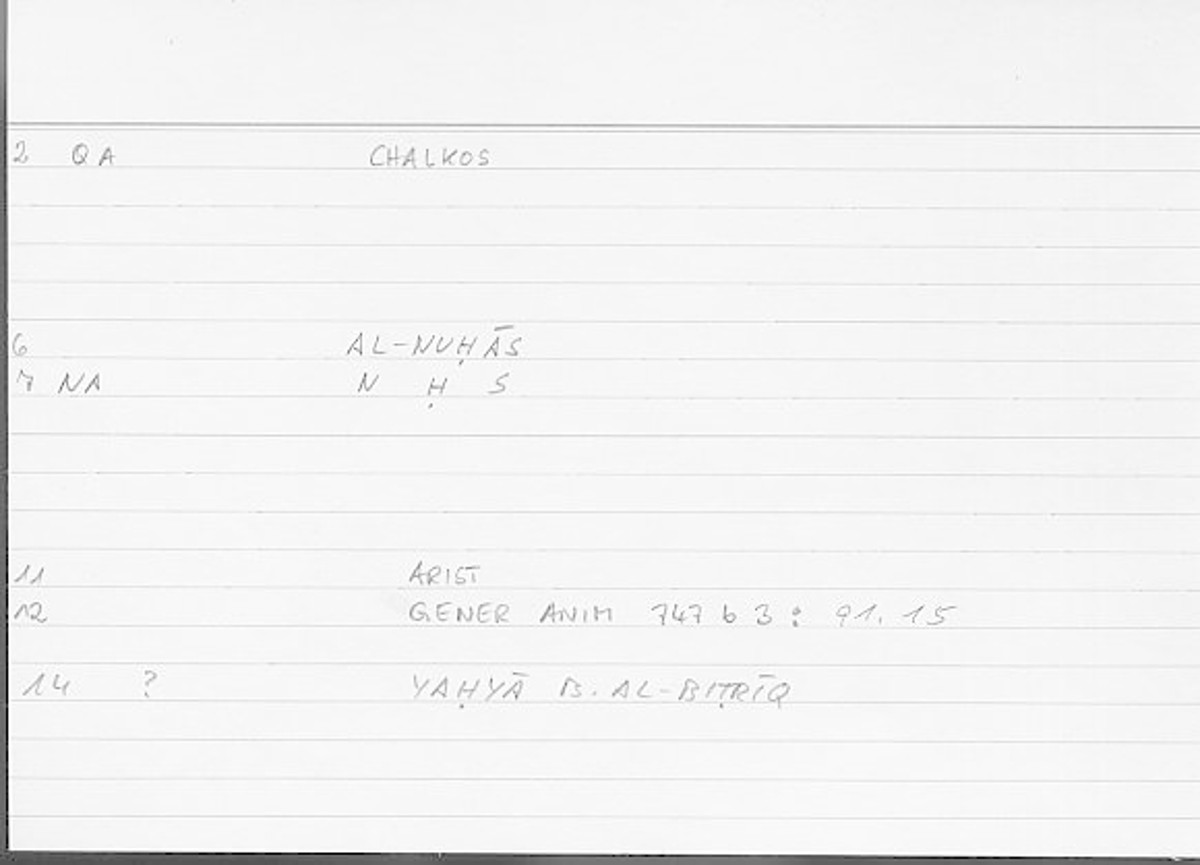 2 QA CHALKOS
6 AL-NUḤĀS
7 NA N Ḥ S
11 ARIST
12 GENER ANIM 747 b 3 : 91.15
14 ? YAḤYĀ B. AL-BIṬRĪQ